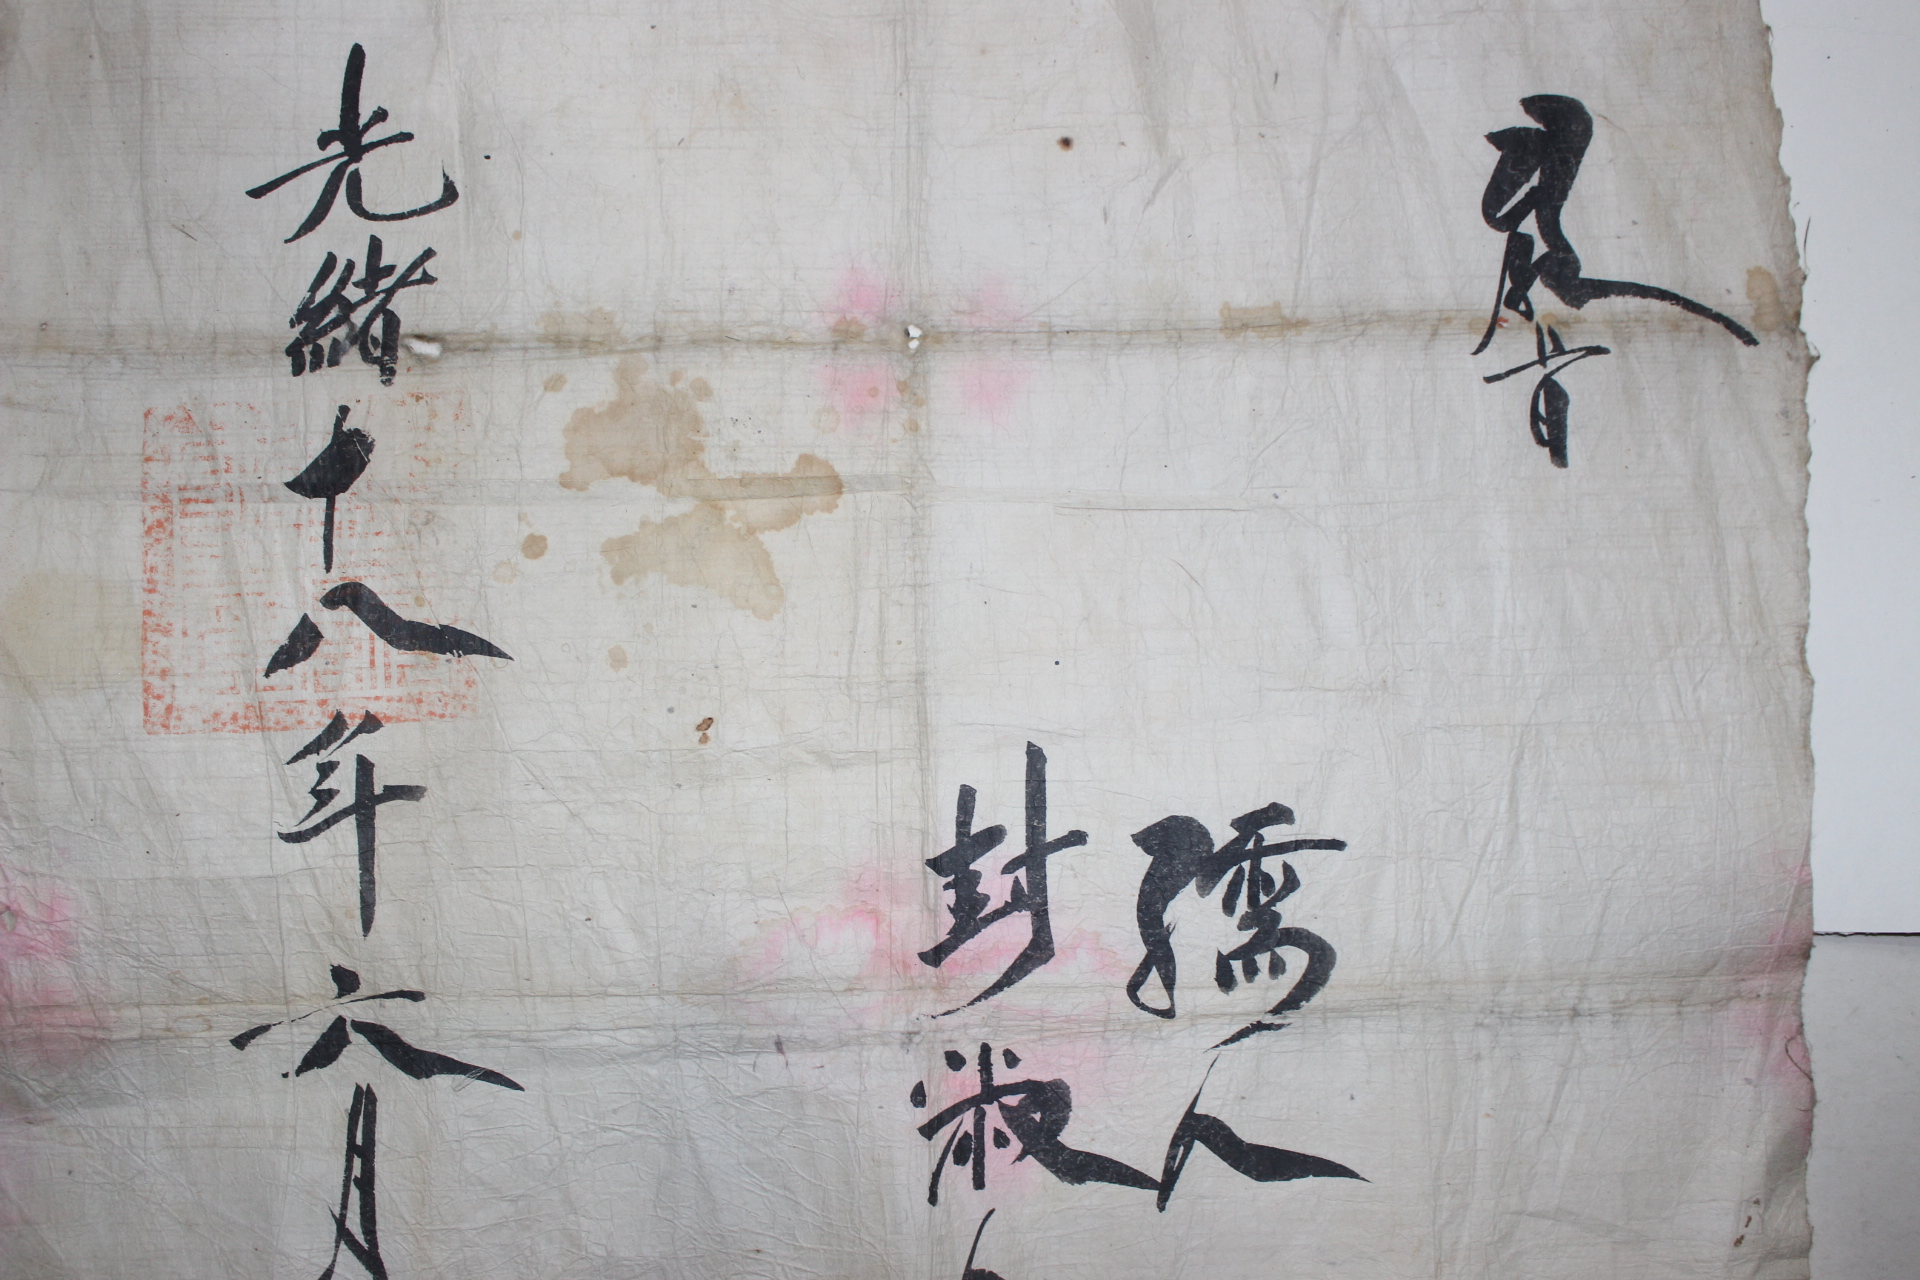 敎旨
孺人
封淑
光緖十八年六月